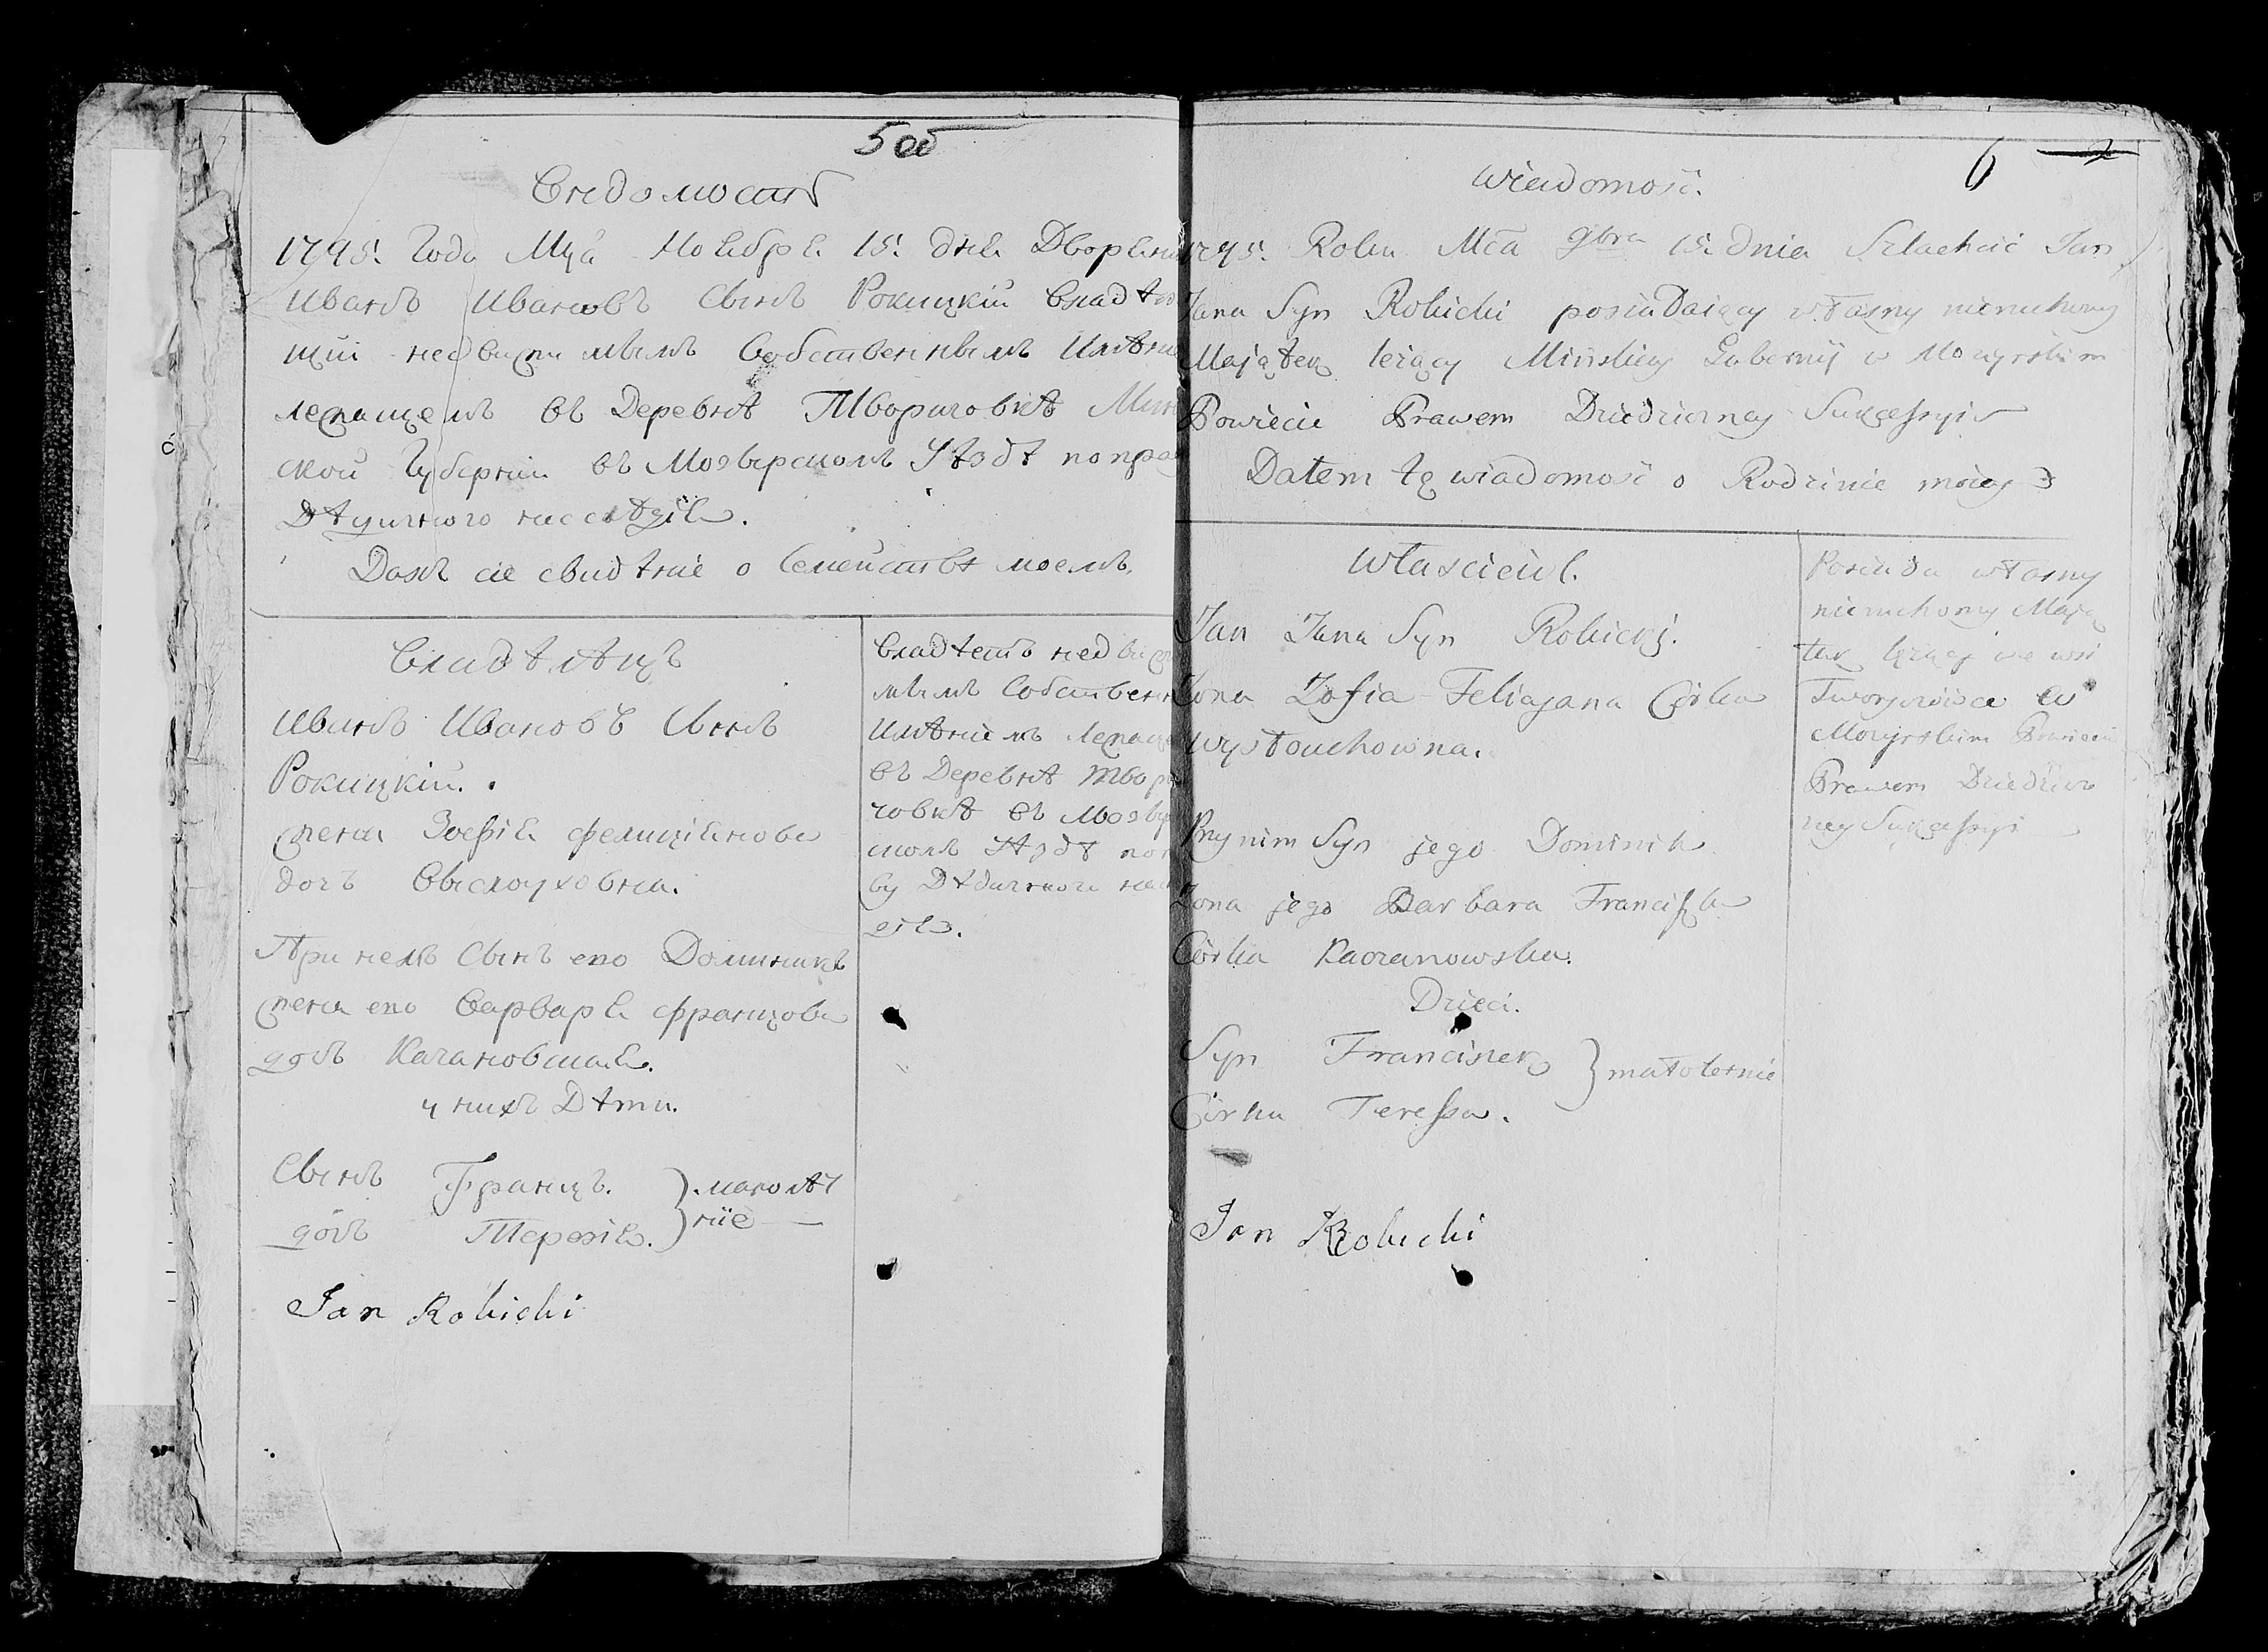 5 об
Вѣдомость
1795: Года Мца Ноября 15: дня Дворянин
Иванъ Ивановъ Сынъ Рокицкій владѣю
щій недвижимымъ Собственнымъ Имѣние
лежащемъ въ Деревнѣ Творичовкѣ Мин
ской Губерніи въ Мозырскомъ Уѣздѣ по пра
Дѣдичного наслѣдія.
Далъ сіе свидѣніе о Семействѣ моемъ.
Владѣлецъ
Иванъ Ивановъ Сынъ
Рокицкій.
жена Зофія Фелиціянова
дочъ Выслоуховна.
При немъ Сынъ его Доминикъ
жена его Варваря Францова
дочъ Качановская.
у нихъ Дѣти.
Сынъ Францъ. } малолѣт
дочъ Терезія. } ніе
Jan Rokicki
Владѣетъ недвиж
мымъ Собственн
Имѣниемъ Лежаще
въ Деревнѣ Твори
човкѣ въ Мозыр
скомъ Уѣздѣ по
ву Дѣдичного на
дія.
6 2
Wiadomość.
1795: Roku Mca 9bra 15: Dnia Szlachcic Jan
Jana Syn Rokicki posiadaiący własny nieruchomy
Maiątek leżący Mińskiey Gubernij w Mozyrskim
Powiecie Prawem Dziedziczney Sukcessyi
Dałem tę wiadomość o Rodzinie moiey
Właściciel.
Jan Jana Syn Rokicki.
Żona Zofia Felicjana Córka
Wysłouchowna.
Przy nim Syn jego Dominik
Żona jego Barbara Franciszka
Córka Kaczanowska.
Dzieci.
Syn Franciszek } małoletnie
Córka Teressa.
Jan Rokicki
Posiada własny
nieruchomy Maią
tek leżący we wsi
Tworyczówce w
Mozyrskim Powiecie
Prawem Dziedzicz
ney Sukcessyi